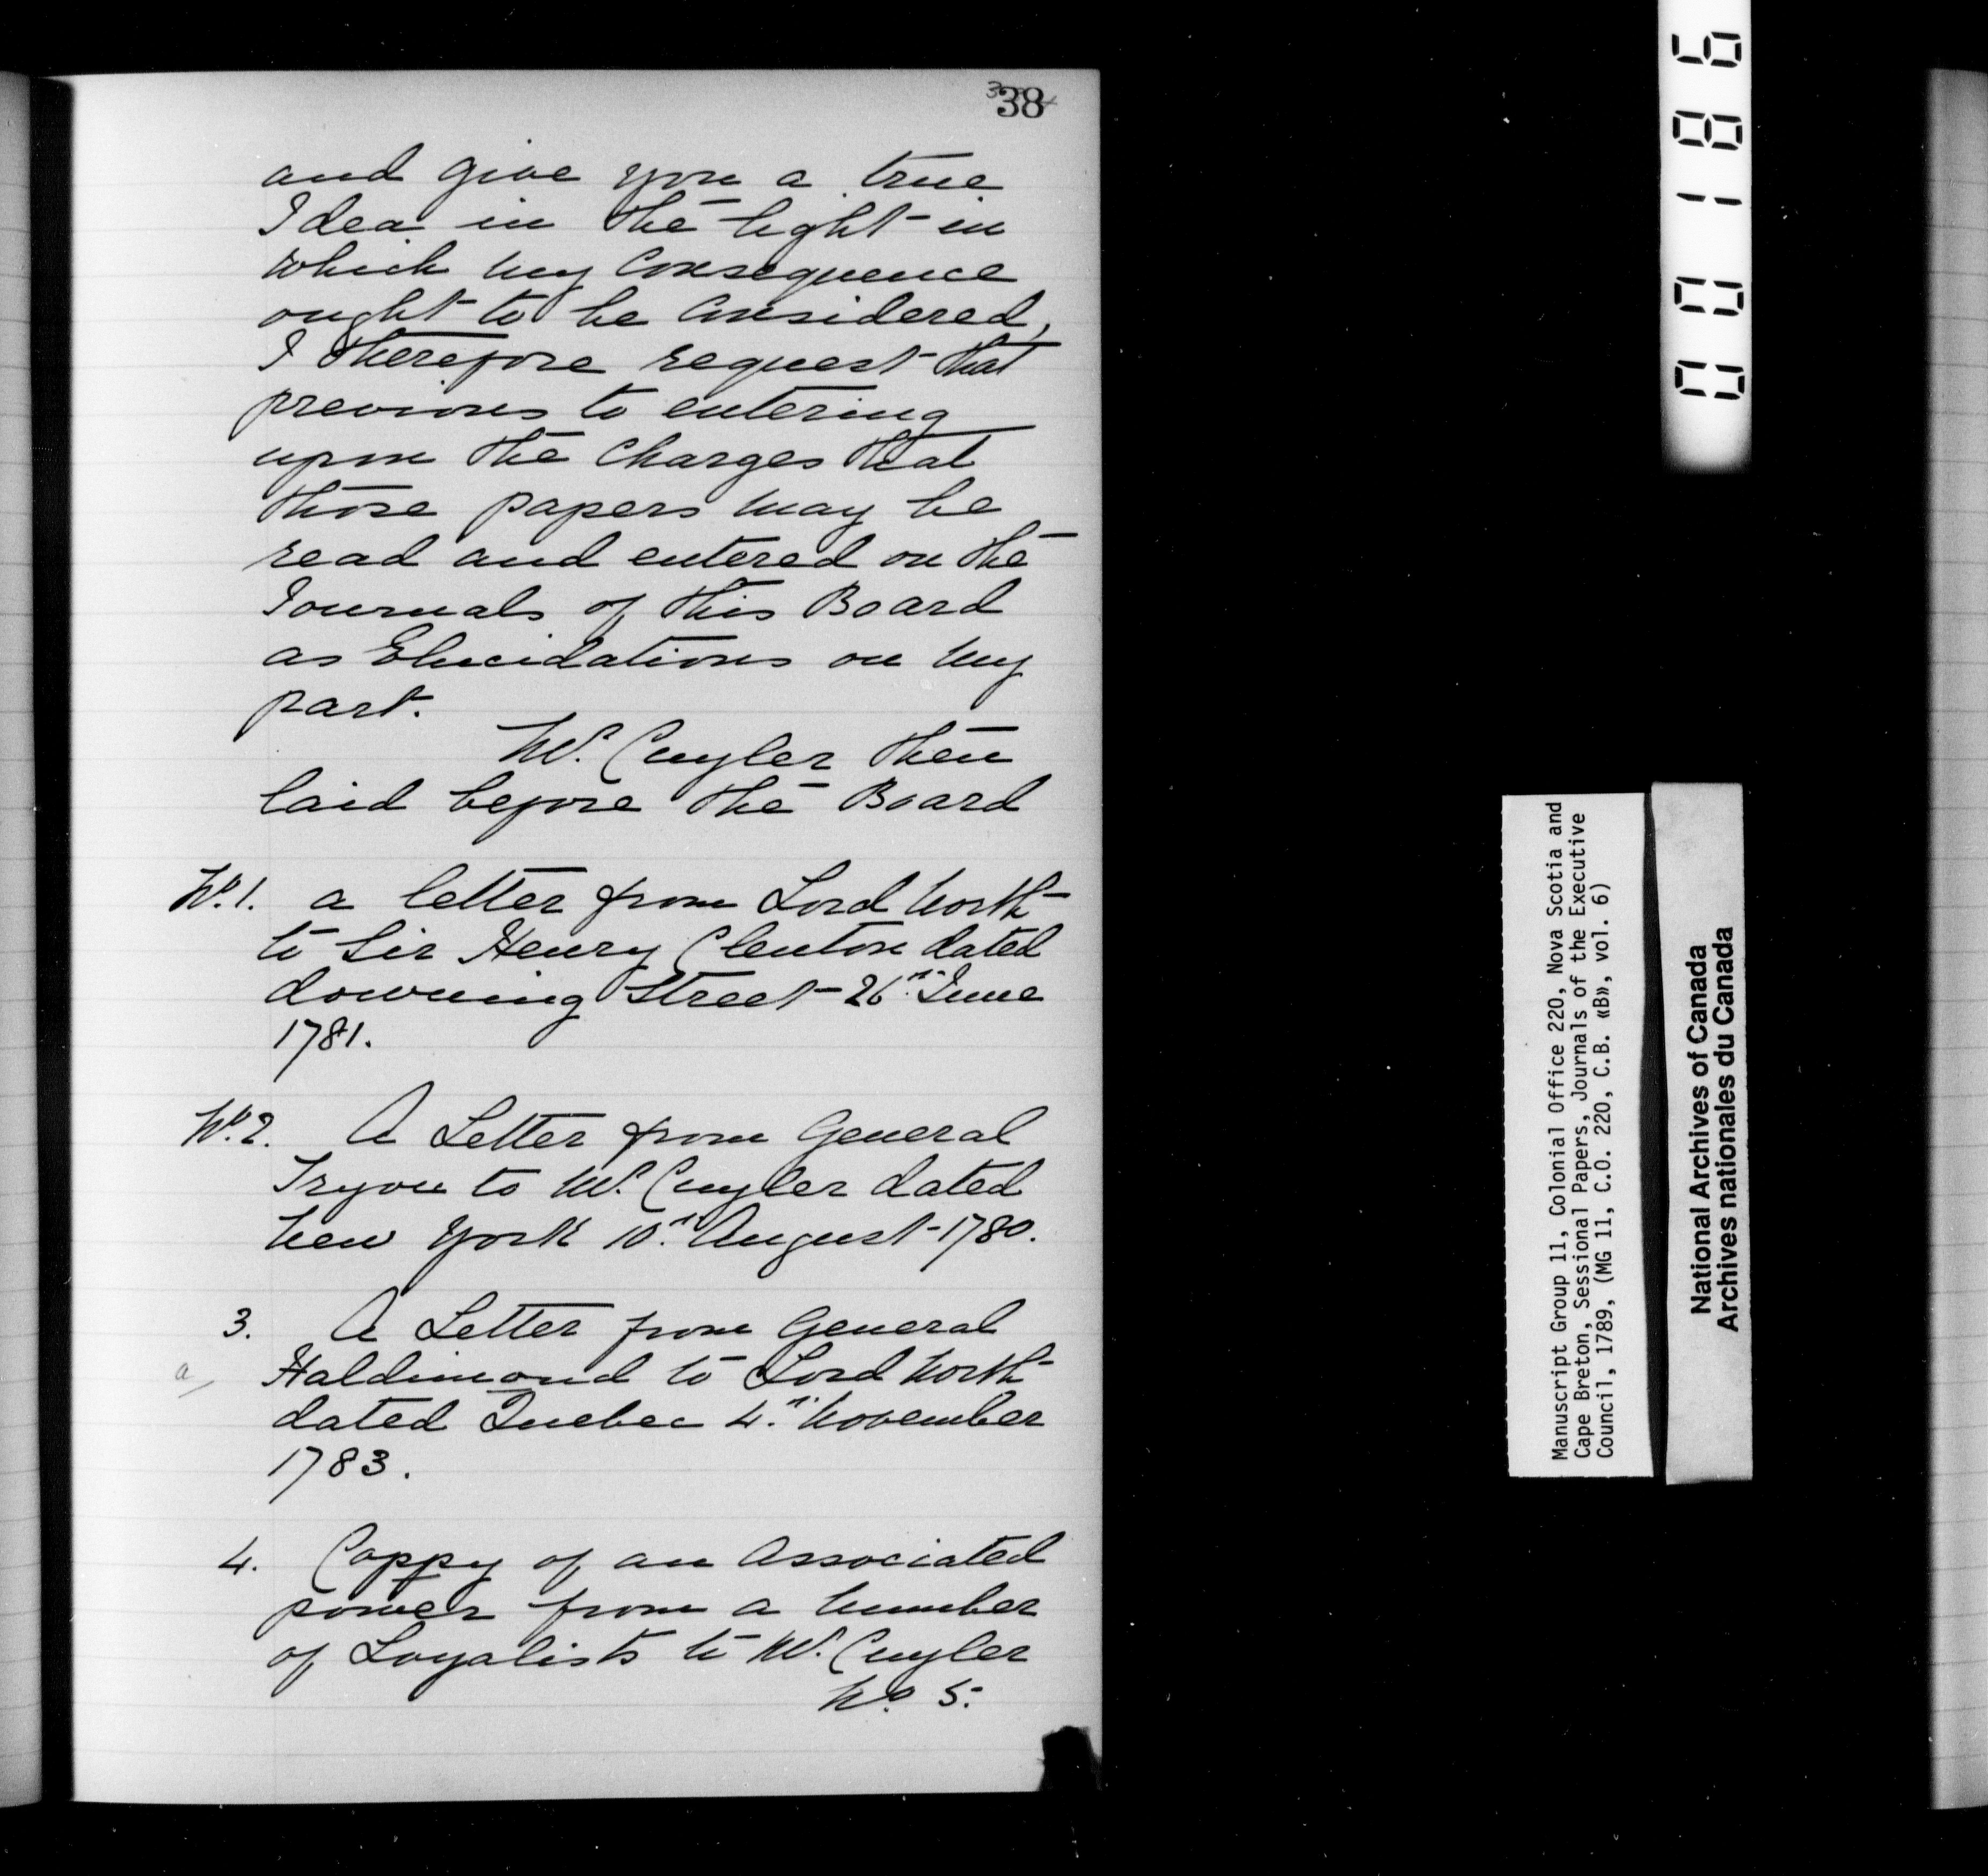 38
and give you a true
Idea in the light in
which my Consequence
ought to be Considered,
I therefore request that
previous to entering
upon the Charges that
those papers may be
read and entered on the
Journals of this Board
as Elucidations on my
part.
Mr. Cuyler then
laid before the Board
No. 1. a letter from Lord North
to Sir Henry Clenton dated
downing Street 26th June
1781.
No. 2. A Letter from General
Tryon to Mr. Cuyler dated
New York 10th August 1780.
3. A Letter from General
a/ Haldimand to Lord North
dated Quebec 4th November
1783.
4. Coppy of an Associated
power from a Number
of Loyalists to Mr. Cuyler
No. 5.
00186
Manuscript Group 11, Colonial Office 220, Nova Scotia and
Cape Breton, Sessional Papers, Journals of the Executive
Council, 1789, (MG 11, C.O. 220, C.B. «B», vol. 6)
National Archives of Canada
Archives nationales du Canada